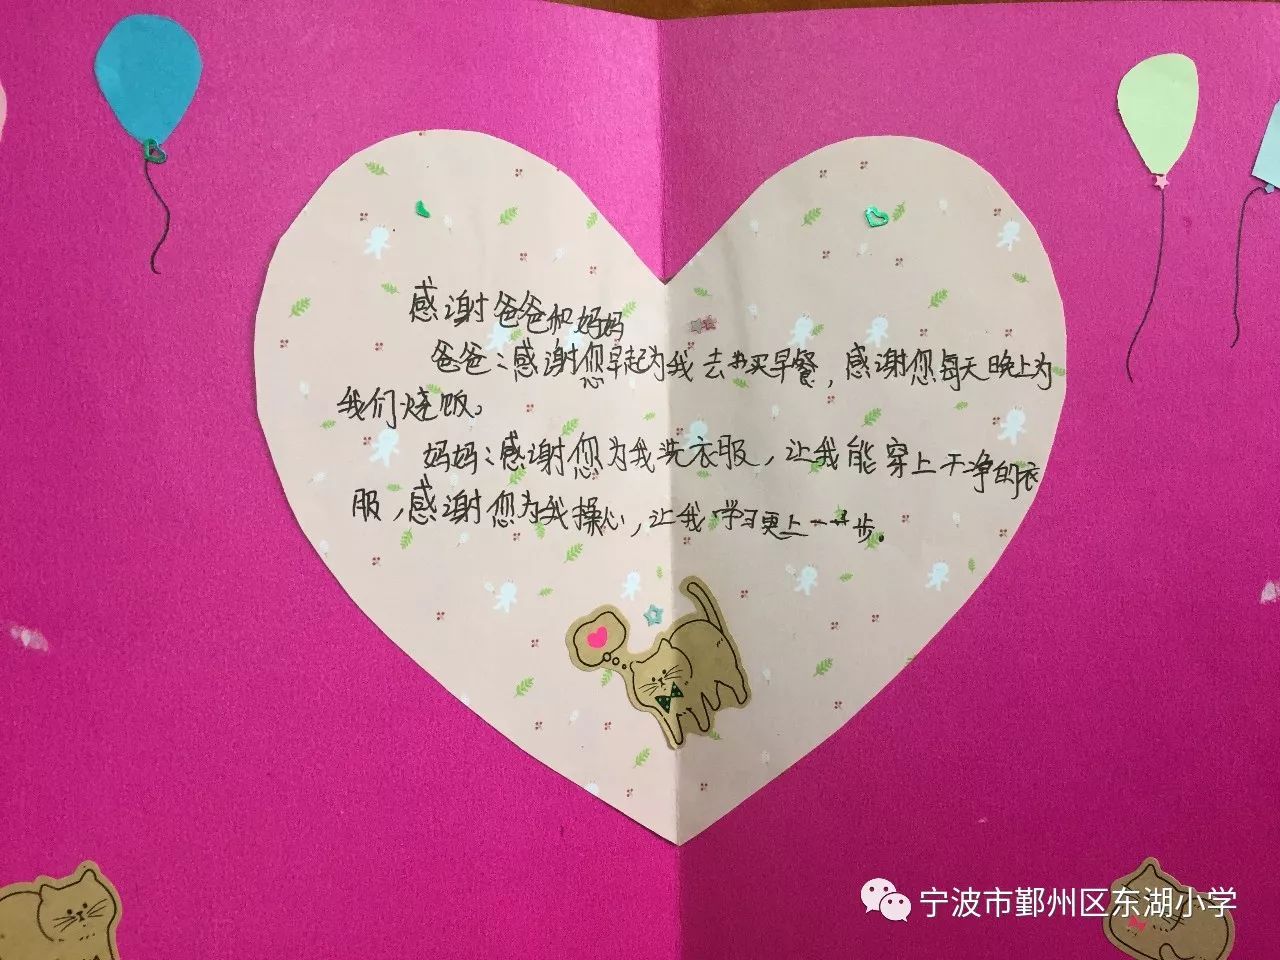 感谢爸爸和妈妈
爸爸：感谢您早起为我去买早餐，感谢您每天晚上为
我们烧饭。
妈妈：感谢您为我洗衣服，让我能穿上干净的衣
服，感谢您为我操心，让我学习更上一步。
宁波市鄞州区东湖小学